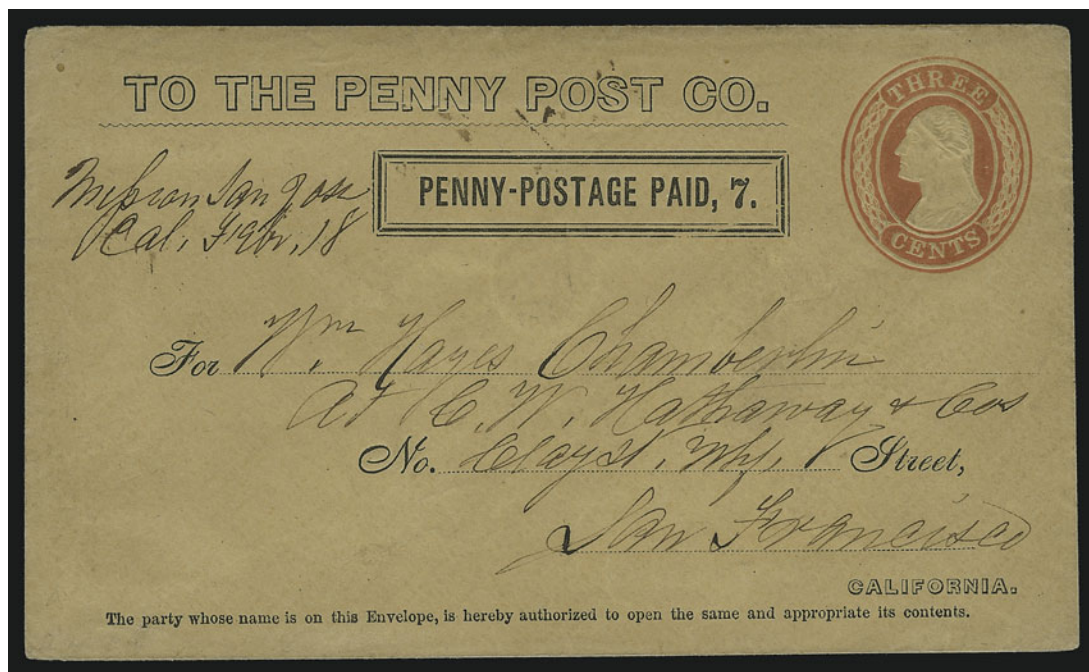 TO THE PENNY POST CO.
THREE
CENTS
PENNY-POSTAGE PAID, 7.
Mission San Jose
Cal, Feb, 18
For Wm Hayes Chamberlin
At C. W. Hathaway & Cos
No. Clay st, Whf, Street,
San Francisco
CALIFORNIA.
The party whose name is on this Envelope, is hereby authorized to open the same and appropriate its contents.